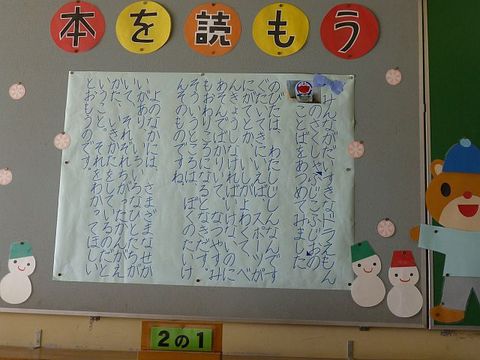 本を読もう
みんながだいすきなドラえもん
のさくしゃ、ふじこふじおの
ことばをあつめてみました。
のびたは、わたしじしんなんです
ぐたいてきにいえば、スポーツが
にがてとか、
もおわりごろになるとなきだす。
そういうところは、ぼくのたいけ
んそのものですね
よのなかには、さまざまなせか
いがあり、いろいろなひとたちが
いて、それぞれちがったかんがえ
がたいきかたをしているのだと
いうこと。それをわかってほしい
とおもうのです
2の1